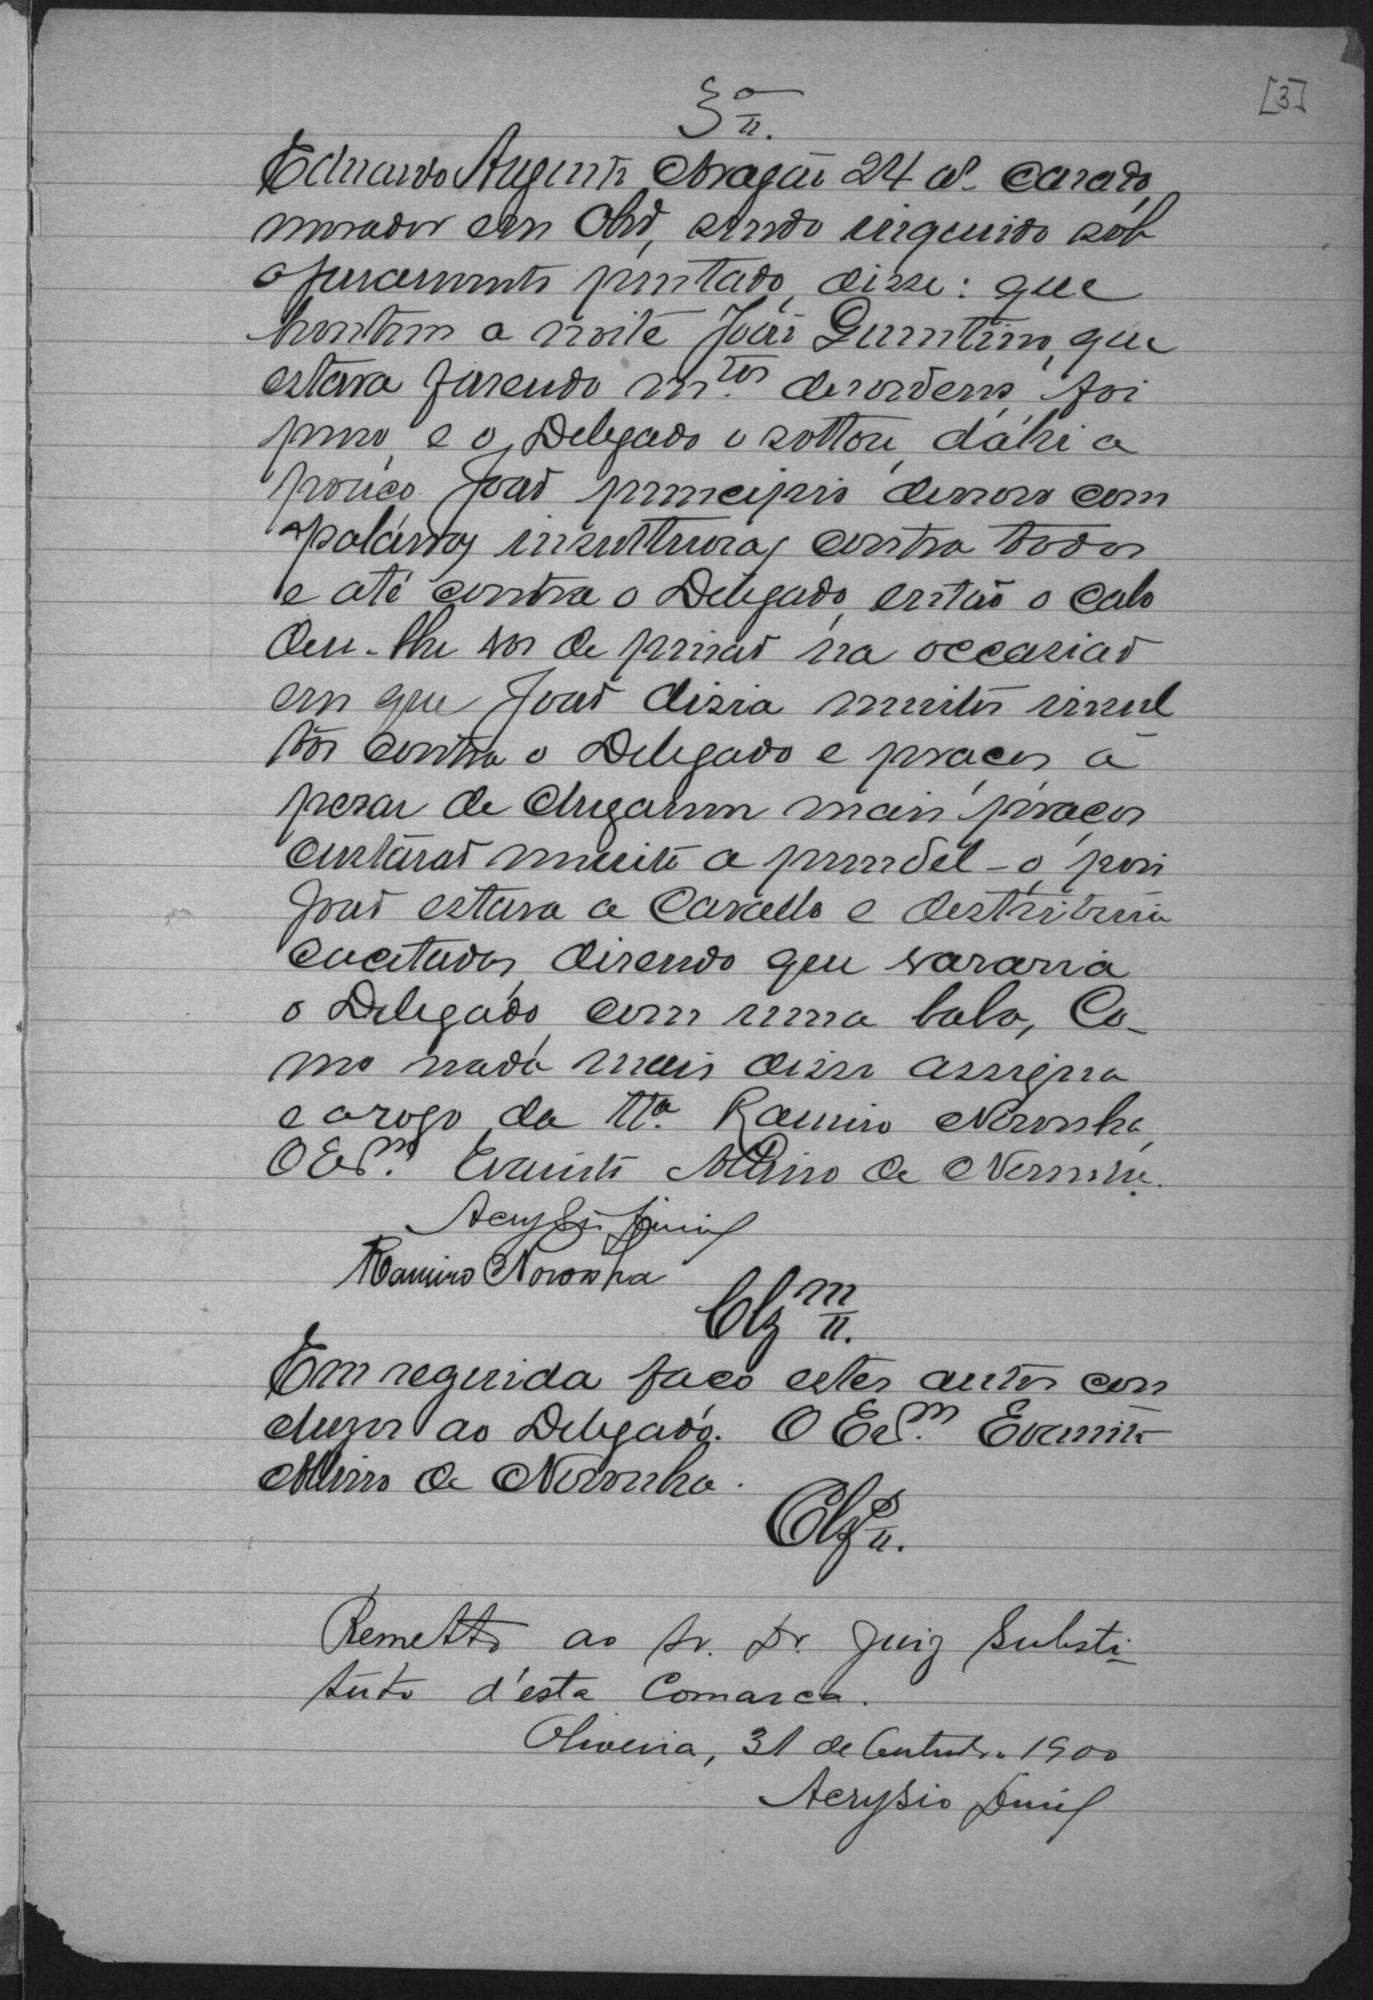 [3]
3ª
Eduardo Augusto Aragão 24 as. casado,
morador em Olivª, sendo inquirido sob
o juramento prestado, disse: que
hontem a noite João Quintino, que
estava fasendo mtos desordens, foi
preso, e o Delegado o soltou, dáhi a
pouco João principio denovo com
palávras insultuosas contra todos
e até contra o Delegado, então o cabo
deu-lhe vos de prisão na occasião
em que João disia muitos insul
tos contra o Delegado e praças, a
pezar de chegarem mais praças
custárão muito a prendel-o, pois
João estava a Cavallo e destribuia
disendo que vararia
o Delegado com uma bala, Co-
mo nada mais disse assigna
e a rogo da tta. Ramiro Noronha,
O Escm. Evaristo Mario de Noronha.
Acrysio Diniz
Ramiro Noronha
Clzm
Em seguida faco estes autos con
clusos ao Delegado. O Escm. Evaristo
Mario de Noronha.
Clzs
Remetto ao Sr. Dr. Juiz Substi-
tuto d'esta Comarca.
Oliveira, 31 de Outubro 1900
Acrysio Diniz